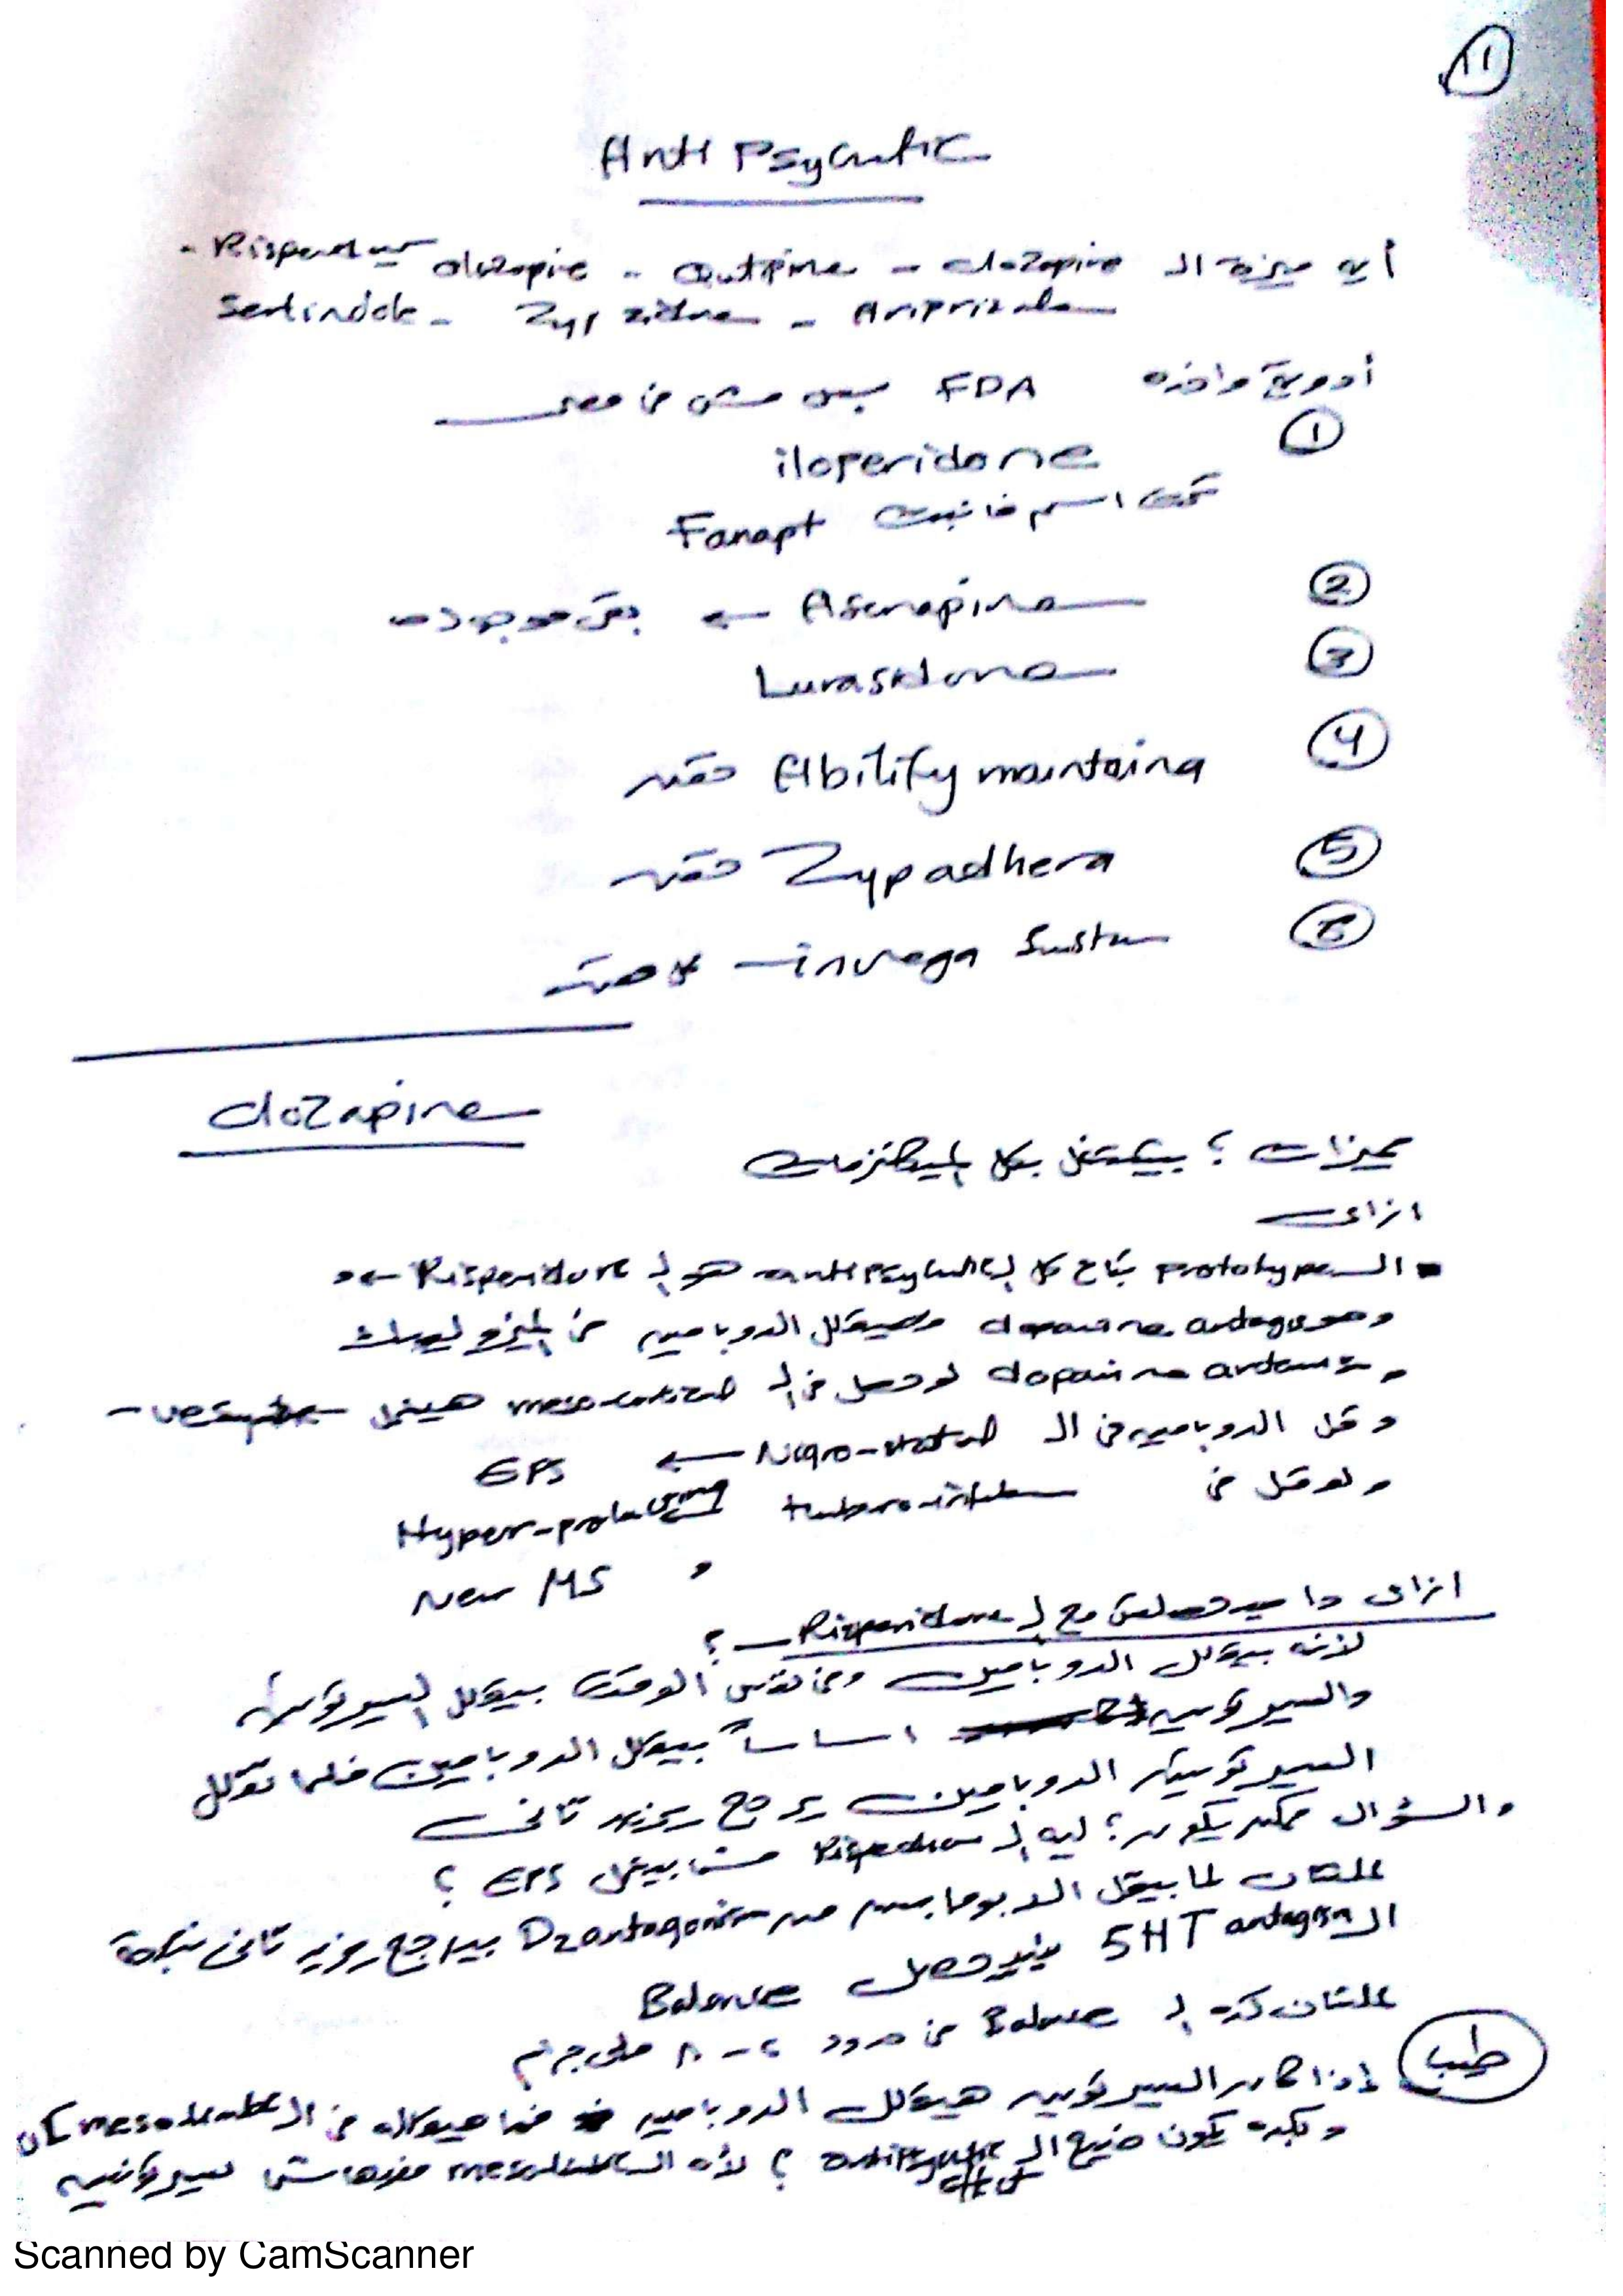 11
Anti Psycutic
أيه ميزة الـ clozapine - Qutipine - olozapine - Risperdur
Sertindole - Zypzidne - Ariprizale
أدوية واخده FDA بس مش فى مصر
1 iloperidone
تحت اسم فانبت Fanapt
2 Asenapine ← بقى موجود
3 Lurasidone
4 Abilify maintaina حقنه
5 Zypadhera حقنه
6 invega Sustu حقنه
clozapine
مميزات ؟ بيشتغل بكل الميكانزمات
ازاى
الـ prototype بتاع كل الـ antipsycutic هو الـ Risperidone
وهو dopamine antagonist هيقلل الدوبامين فى الميزوليمبك
و dopamine لو حصل فى الـ meso-cortical هيعمل
وقل الدوبامين فى الـ Nigro-striatal ← EPS
ولو قل فى Hyper-prolactinemia
و New MS
ازاى دا مبيحصلش مع الـ Risperidone ؟
لأنه بيقلل الدوبامين وفى نفس الوقت بيقلل السيروتونين
والسيروتونين اساساً بيقلل الدوبامين فلما تقلل
السيروتونين الدوبامين يرجع يزيد تانى
والسؤال ممكن يكون ؟ ليه الـ Risperidone مش بيعمل EPS ؟
علشان لما بيقل الدوبامين من D2 antagonism بيرجع يزيد تانى نتيجة
الـ 5HT antagosn فيحصل Balance
علشان كده الـ Balance فى حدود ٤ - ٨ ملى جرام
طيب إذا كان السيروتونين هيقلل الدوبامين هيقلله فى الـ mesolimbic
وبكده يكون ضيع الـ antipsycutic effect ؟ لأن الـ mesolimbic مفيهاش سيروتونين
Scanned by CamScanner